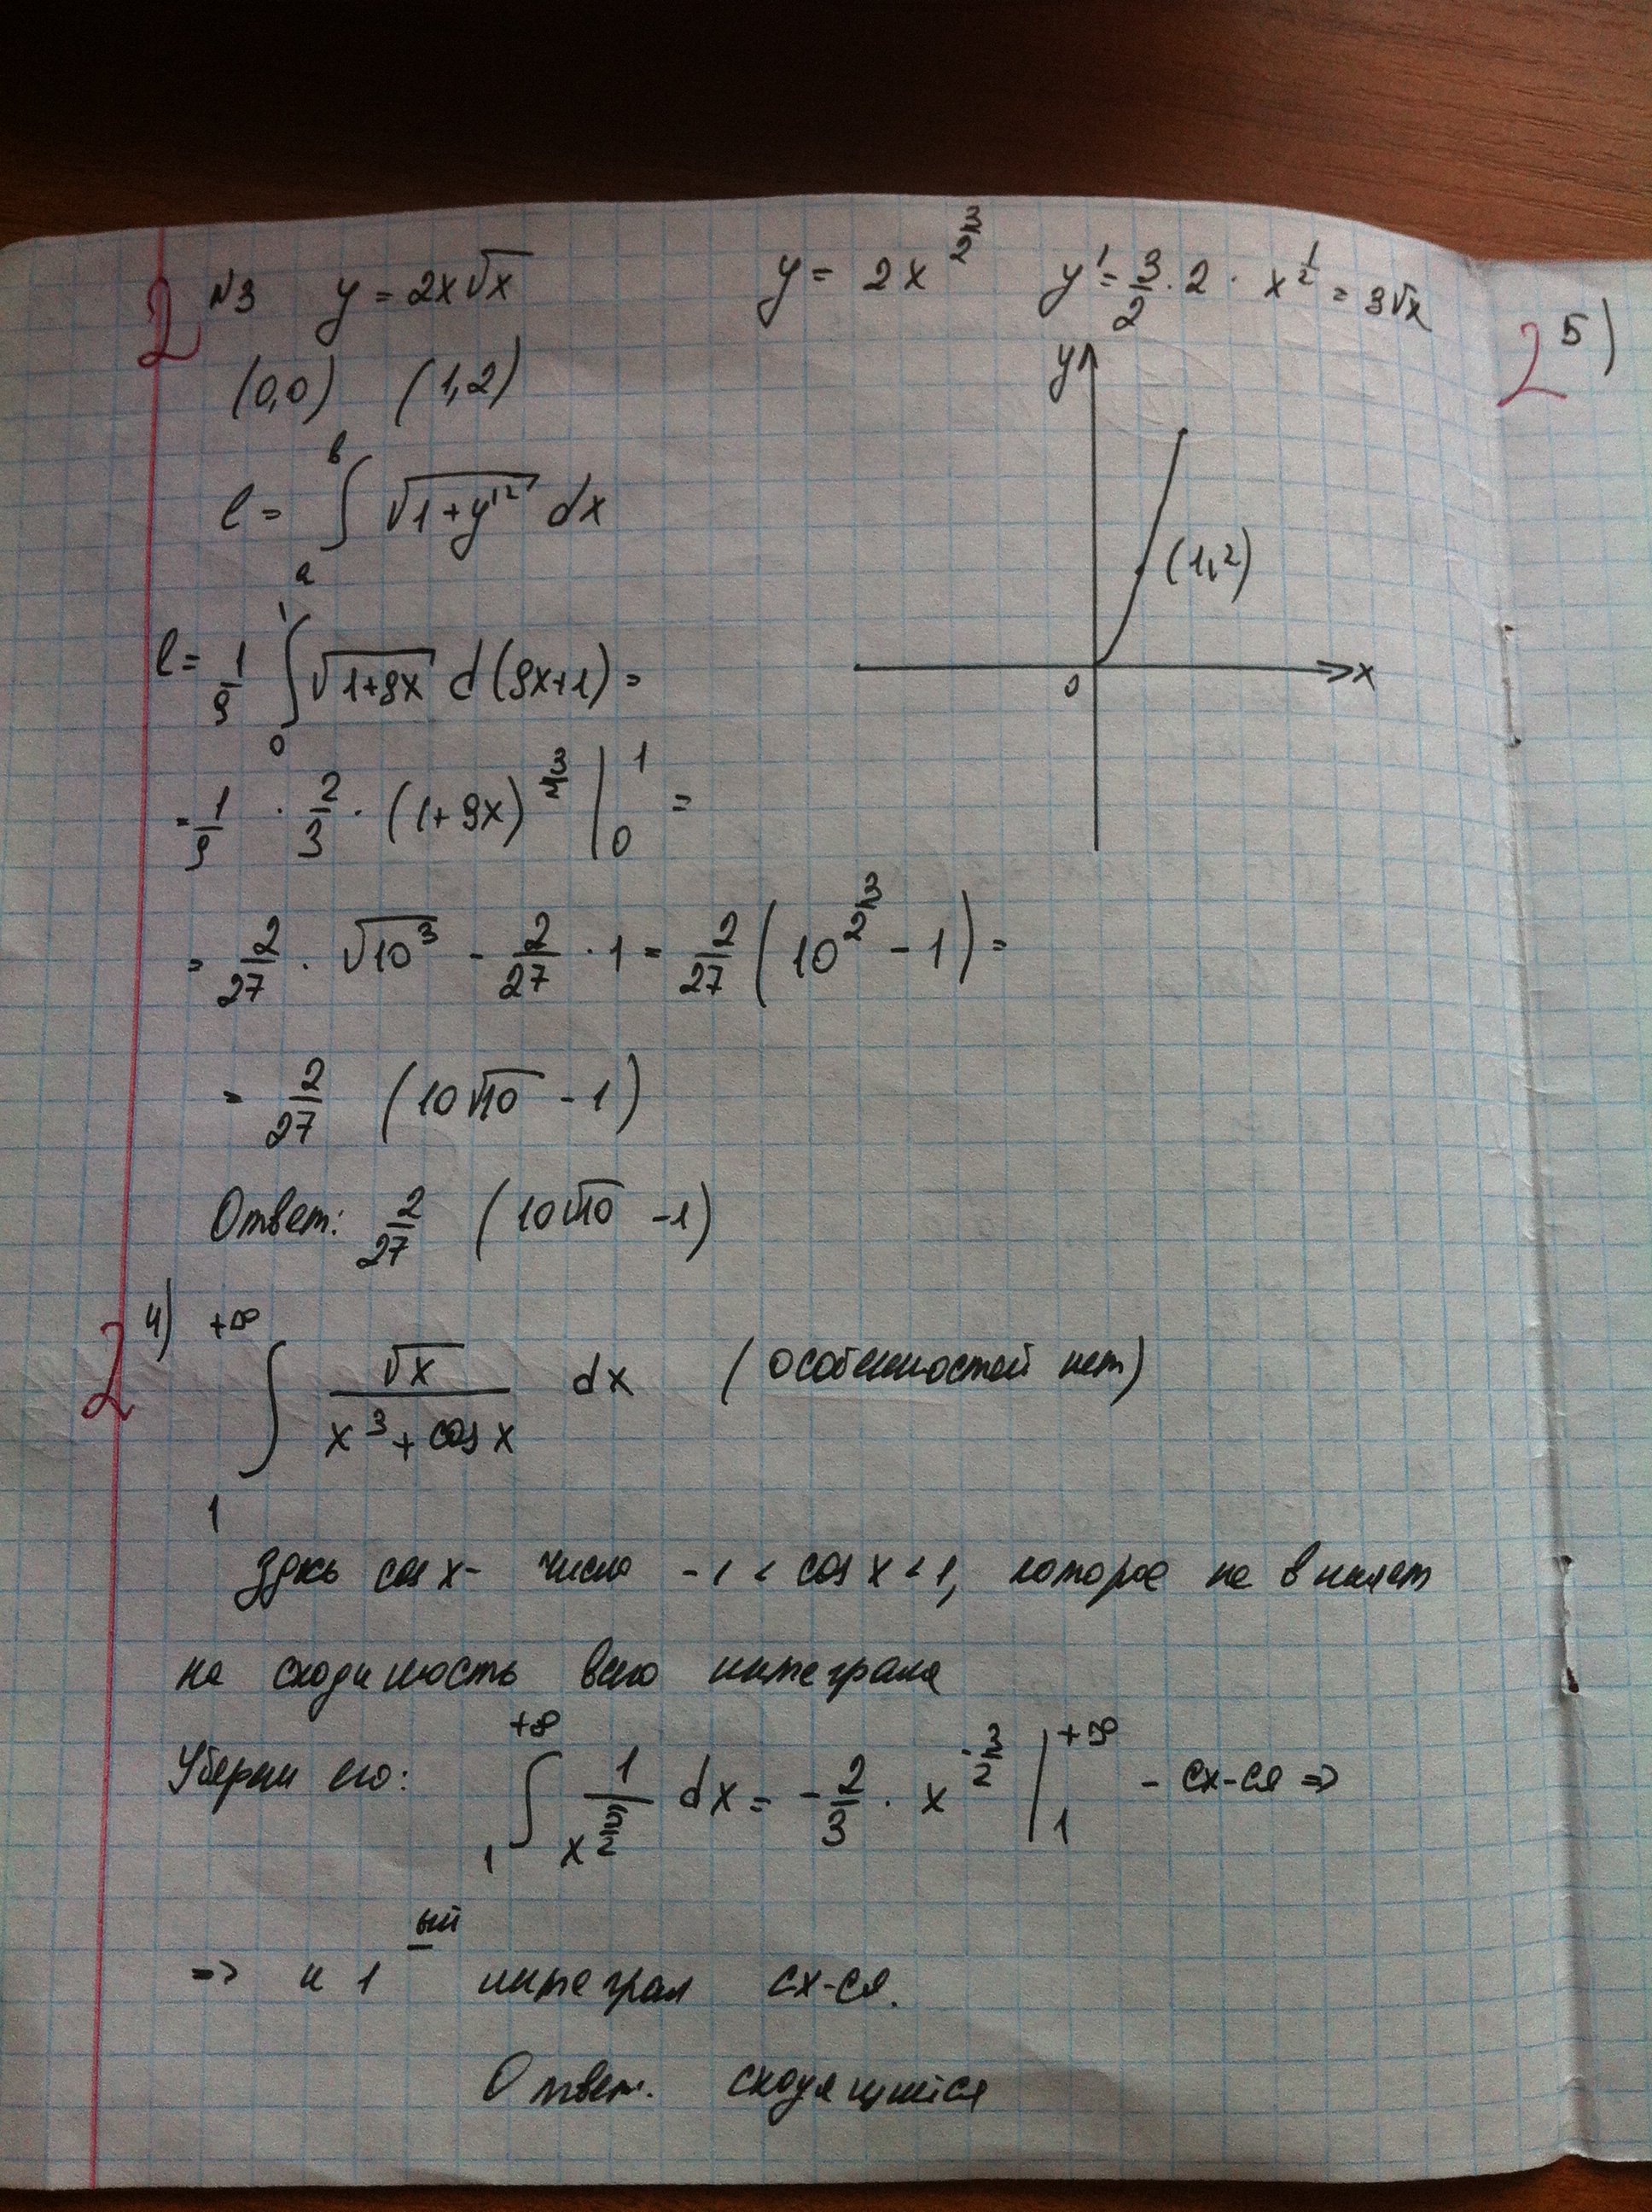 2 №3 y = 2x√x y = 2x^{3/2} y' = 3/2 · 2 · x^{1/2} = 3√x
(0,0) (1,2)
y
l = ∫_a^b √(1+y'²) dx
(1,2)
l = 1/9 ∫_0^1 √(1+9x) d(9x+1) =
0 x
= 1/9 · 2/3 · (1+9x)^{3/2} |_0^1 =
= 2/27 · √10³ - 2/27 · 1 = 2/27 (10^{3/2} - 1) =
= 2/27 (10√10 - 1)
Ответ: 2/27 (10√10 - 1)
2 4) ∫_1^{+∞} √x / (x³ + cos x) dx (особенностей нет)
Здесь cos x - число -1 < cos x < 1, которое не влияет
на сходимость всего интеграла
Уберем его: ∫_1^{+∞} 1/x^{5/2} dx = -2/3 · x^{-3/2} |_1^{+∞} - сх-ся =>
=> и 1ый интеграл сх-ся.
Ответ. сходящийся
2 5)